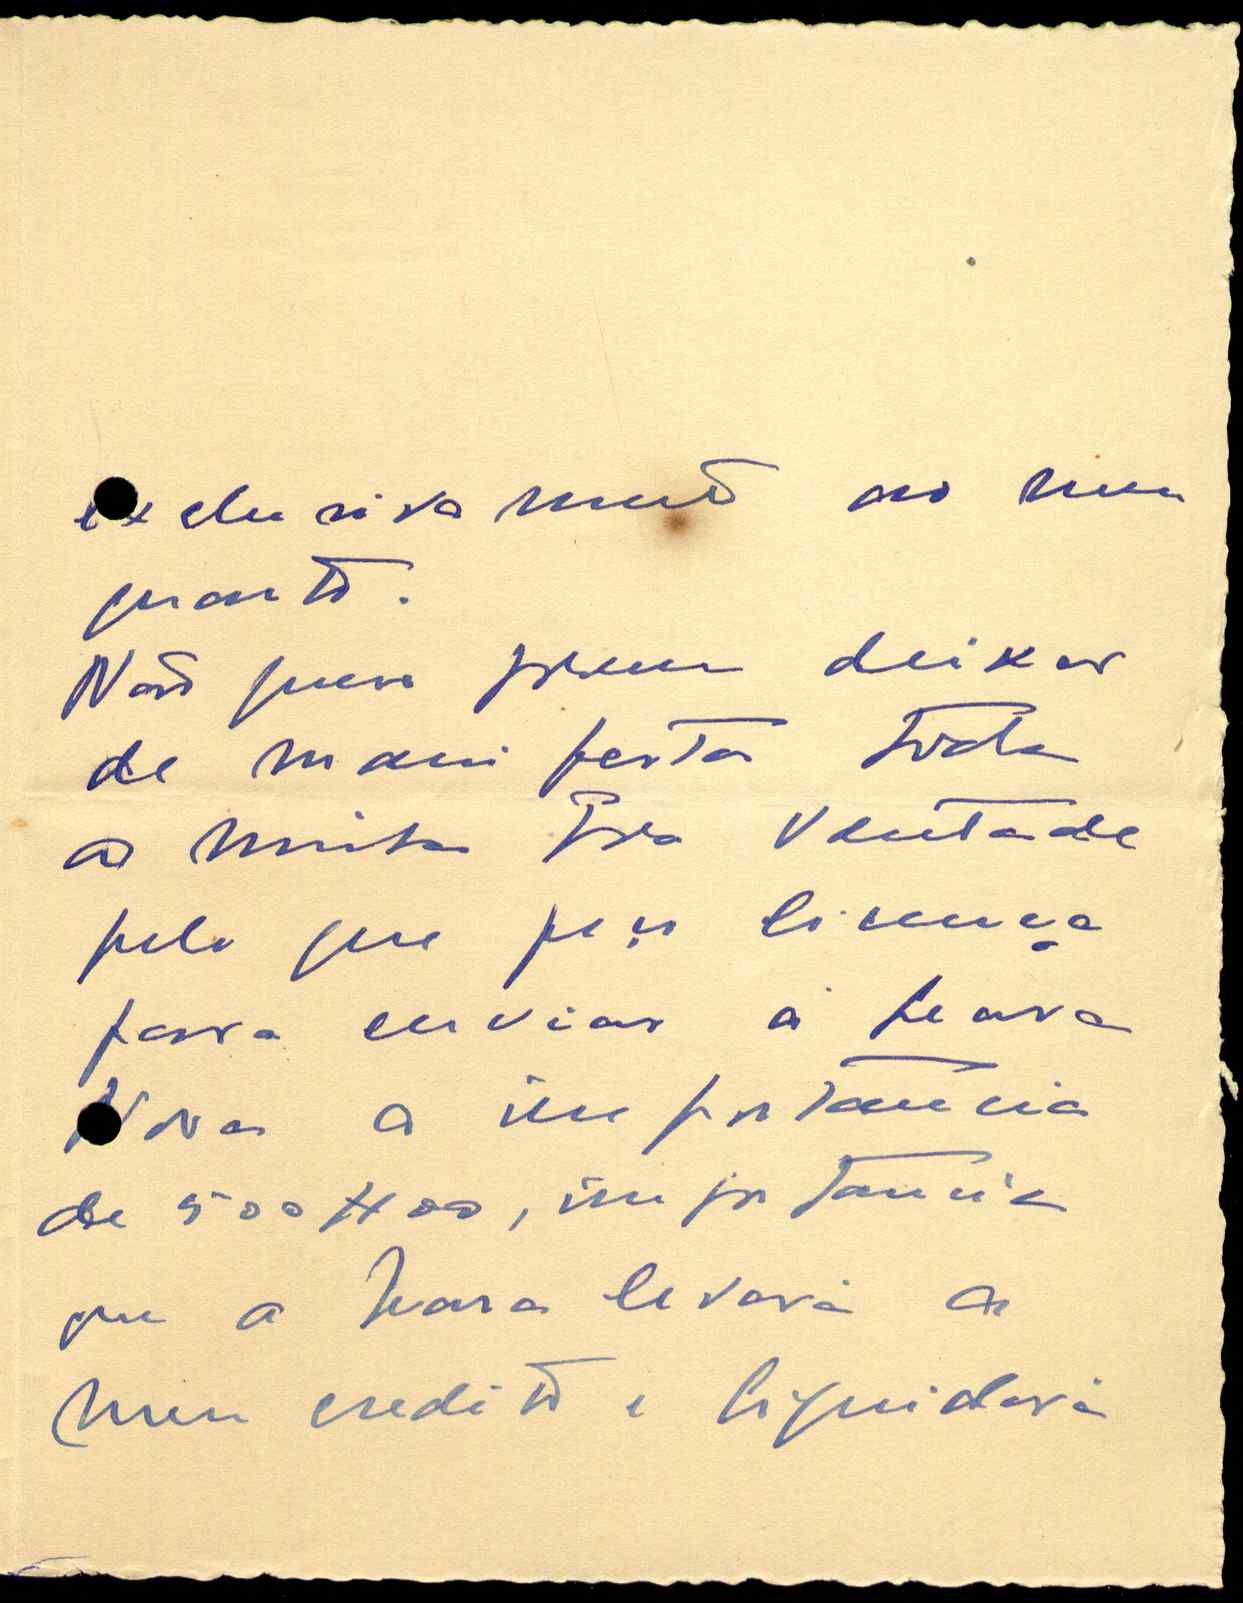 exclusivamente ao meu
quarto.
Não quero porem deixar
de manifestar toda
a minha boa vontade
pelo que peço licença
para enviar à Seara
Nova a importancia
de 500$00, importancia
que a Seara levará a
meu credito e liquidará